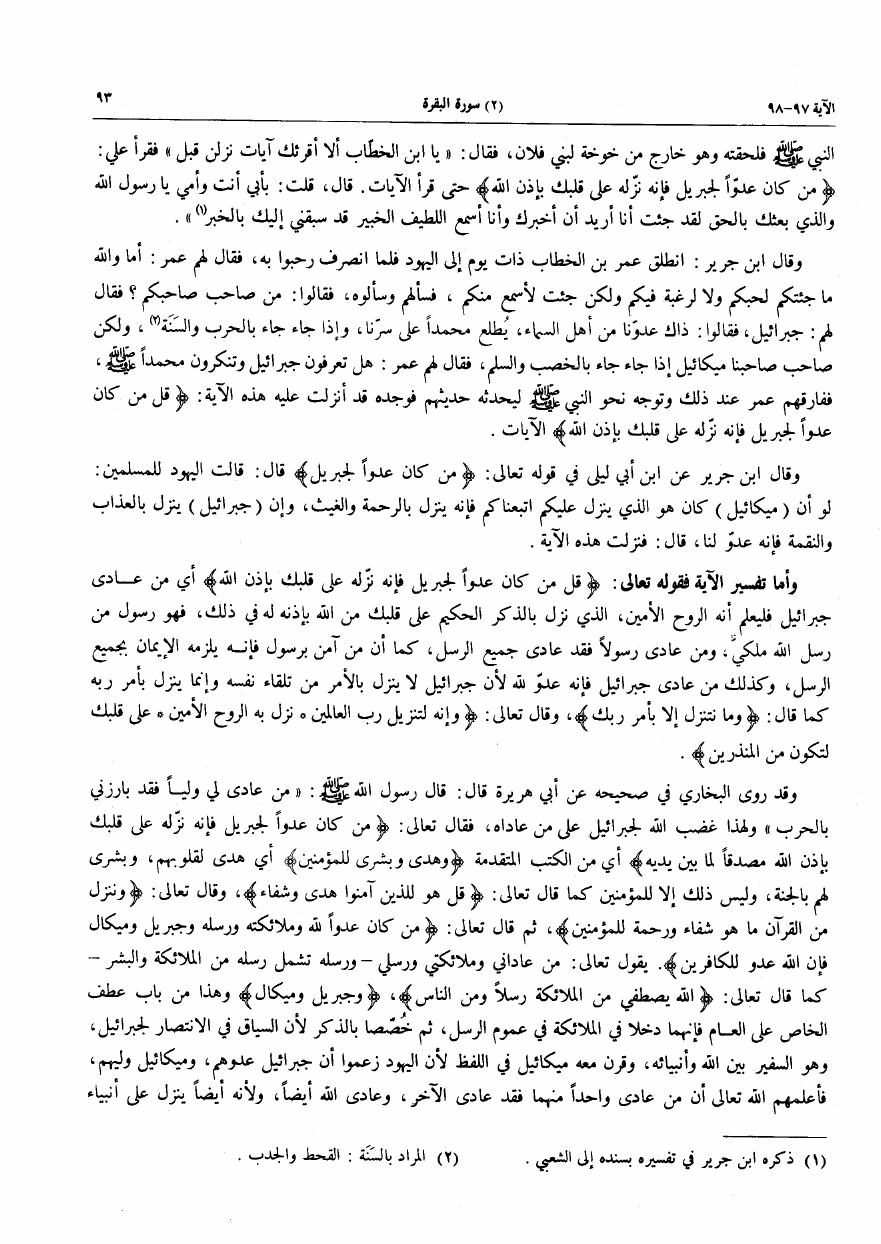 الآية ٩٧-٩٨
(٢) سورة البقرة
٩٣
النبي ﷺ فلحقته وهو خارج من خوخة لبني فلان، فقال: « يا ابن الخطّاب ألا أقرئك آيات نزلن قبل » فقرأ علي:
﴿ من كان عدوّاً لجبريل فإنه نزّله على قلبك بإذن الله﴾ حتى قرأ الآيات. قال، قلت: بأبي أنت وأمي يا رسول الله
والذي بعثك بالحق لقد جئت أنا أريد أن أخبرك وأنا أسمع اللطيف الخبير قد سبقني إليك بالخبر(١) » .
وقال ابن جرير : انطلق عمر بن الخطاب ذات يوم إلى اليهود فلما انصرف رحبوا به، فقال لهم عمر : أما والله
ما جئتكم لحبكم ولا لرغبة فيكم ولكن جئت لأسمع منكم ، فسألهم وسألوه، فقالوا: من صاحب صاحبكم ؟ فقال
لهم: جبرائيل، فقالوا: ذاك عدوّنا من أهل السماء، يُطلع محمداً على سرّنا، وإذا جاء جاء بالحرب والسَنَة(٢) ، ولكن
صاحب صاحبنا ميكائيل إذا جاء جاء بالخصب والسلم، فقال لهم عمر : هل تعرفون جبرائيل وتنكرون محمداً ﷺ ،
ففارقهم عمر عند ذلك وتوجه نحو النبي ﷺ ليحدثه حديثهم فوجده قد أنزلت عليه هذه الآية: ﴿ قل من كان
عدواً لجبريل فإنه نزّله على قلبك بإذن الله﴾ الآيات .
وقال ابن جرير عن ابن أبي ليلى في قوله تعالى: ﴿ من كان عدواً لجبريل﴾ قال: قالت اليهود للمسلمين:
لو أن ( ميكائيل ) كان هو الذي ينزل عليكم اتبعناكم فإنه ينزل بالرحمة والغيث، وإن ( جبرائيل ) ينزل بالعذاب
والنقمة فإنه عدوّ لنا، قال: فنزلت هذه الآية .
وأما تفسير الآية فقوله تعالى: ﴿ قل من كان عدواً لجبريل فإنه نزّله على قلبك بإذن الله﴾ أي من عـادى
جبرائيل فليعلم أنه الروح الأمين، الذي نزل بالذكر الحكيم على قلبك من الله بإذنه له في ذلك، فهو رسول من
رسل الله ملكيّ، ومن عادى رسولاً فقد عادى جميع الرسل، كما أن من آمن برسول فإنـه يلزمه الإيمان بجميع
الرسل، وكذلك من عادى جبرائيل فإنه عدوّ لله لأن جبرائيل لا ينزل بالأمر من تلقاء نفسه وإنما ينزل بأمر ربه
كما قال: ﴿ وما نتنزل إلا بأمر ربك﴾، وقال تعالى: ﴿ وإنه لتنزيل رب العالمين * نزل به الروح الأمين * على قلبك
لتكون من المنذرين﴾ .
وقد روى البخاري في صحيحه عن أبي هريرة قال: قال رسول الله ﷺ : « من عادى لي وليـاً فقد بارزني
بالحرب » ولهذا غضب الله لجبرائيل على من عاداه، فقال تعالى: ﴿ من كان عدواً لجبريل فإنه نزّله على قلبك
بإذن الله مصدقاً لما بين يديه﴾ أي من الكتب المتقدمة ﴿وهدى وبشرى للمؤمنين﴾ أي هدى لقلوبهم، وبشرى
لهم بالجنة، وليس ذلك إلا للمؤمنين كما قال تعالى: ﴿ قل هو للذين آمنوا هدى وشفاء﴾، وقال تعالى: ﴿ وننزل
من القرآن ما هو شفاء ورحمة للمؤمنين﴾، ثم قال تعالى: ﴿ من كان عدواً لله وملائكته ورسله وجبريل وميكال
فإن الله عدو للكافرين﴾. يقول تعالى: من عاداني وملائكتي ورسلي – ورسله تشمل رسله من الملائكة والبشر –
كما قال تعالى: ﴿ الله يصطفي من الملائكة رسلاً ومن الناس﴾، ﴿وجبريل وميكال﴾ وهذا من باب عطف
الخاص على العـام فإنهما دخلا في الملائكة في عموم الرسل، ثم خُصّصا بالذكر لأن السياق في الانتصار لجبرائيل،
وهو السفير بين الله وأنبيائه، وقرن معه ميكائيل في اللفظ لأن اليهود زعموا أن جبرائيل عدوهم، وميكائيل وليهم،
فأعلمهم الله تعالى أن من عادى واحداً منهما فقد عادى الآخر، وعادى الله أيضاً، ولأنه أيضاً ينزل على أنبياء
(١) ذكره ابن جرير في تفسيره بسنده إلى الشعبي .
(٢) المراد بالسَنَة : القحط والجدب .